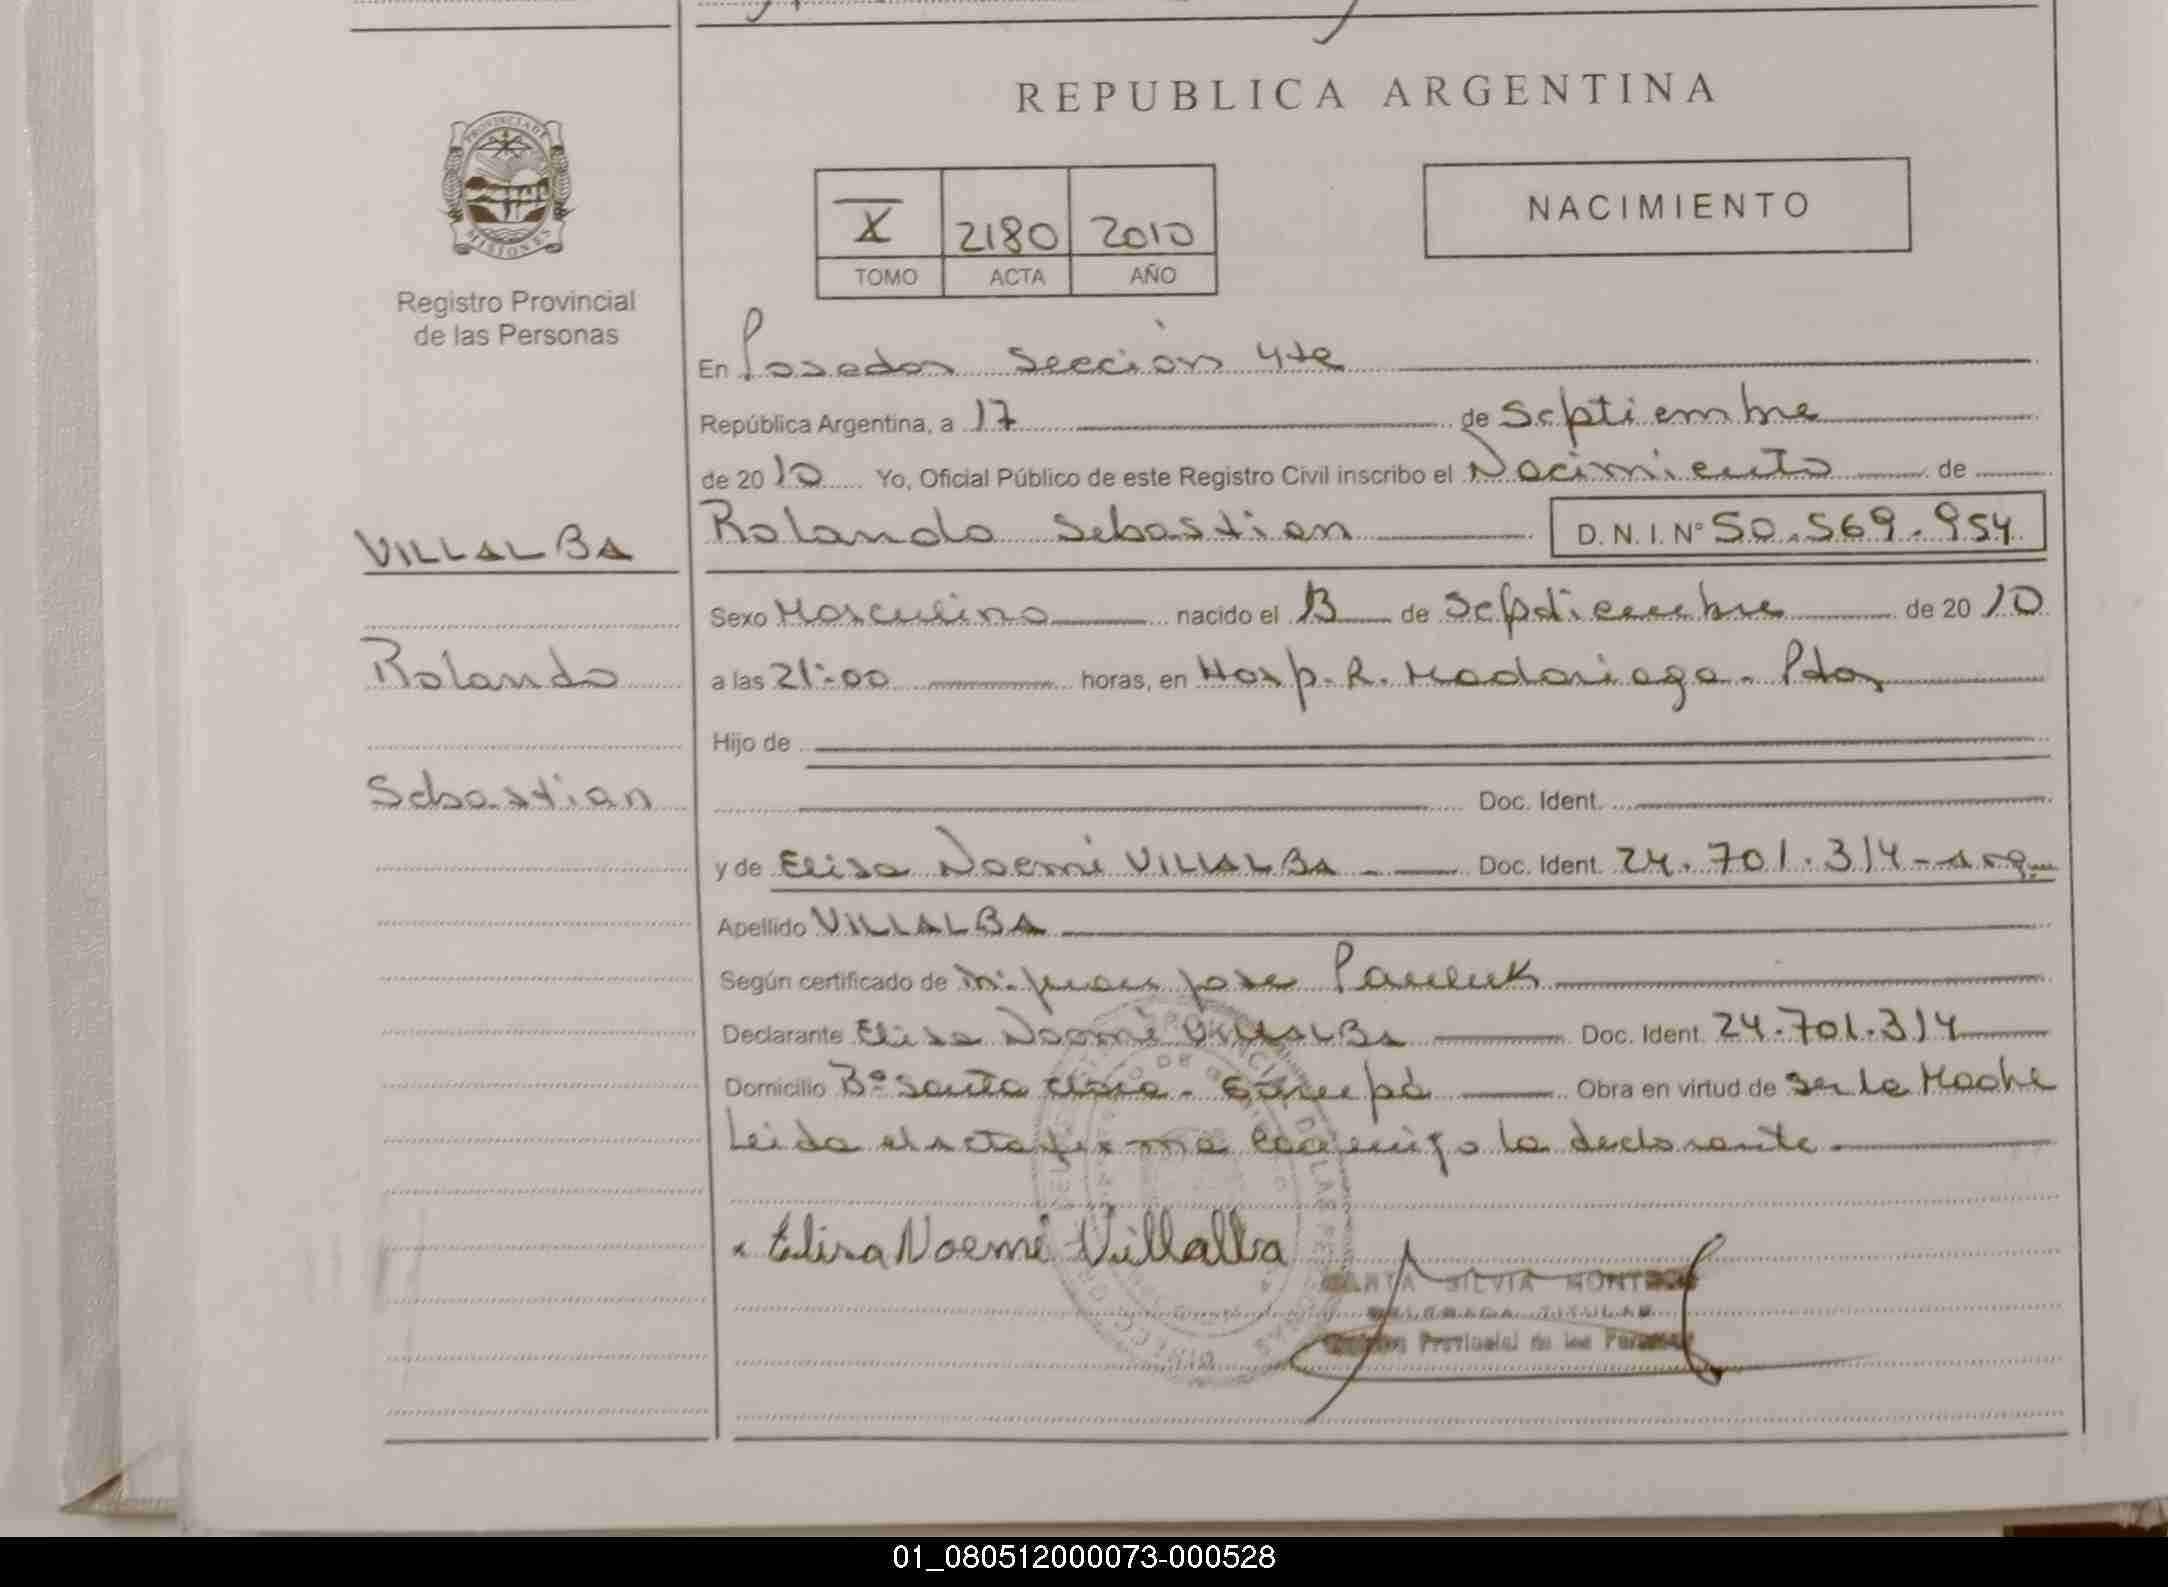 REPUBLICA ARGENTINA
PROVINCIA DE
MISIONES
Registro Provincial
de las Personas
X 2180 2010
TOMO ACTA AÑO
NACIMIENTO
En Posadas Sección 4ta
República Argentina, a 17 de Septiembre
de 2010 Yo, Oficial Público de este Registro Civil inscribo el Nacimiento de
VILLALBA
Rolando Sebastian D.N.I.Nº 50.569.954
Sexo Masculino nacido el 13 de Septiembre de 2010
Rolando
a las 21:00 horas, en Hosp. R. Madariaga - Pdas
Hijo de
Sebastian
Doc. Ident.
y de Elisa Noemi VILLALBA - Doc. Ident. 24.701.314 - arg
Apellido VILLALBA
Según certificado de Dr. Juan Jose
Declarante Elisa Noemi VILLALBA Doc. Ident. 24.701.314
Domicilio Bº Santa Clara - Garupá Obra en virtud de ser la Madre
Leida el acta firma conmigo la declarante
Elisa Noemi Villalba
SILVIA
TITULAR
Provincial de las Personas
01_080512000073-000528